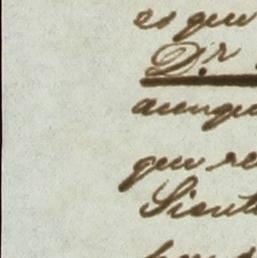 es que
D.r
aunque
que re
Sient